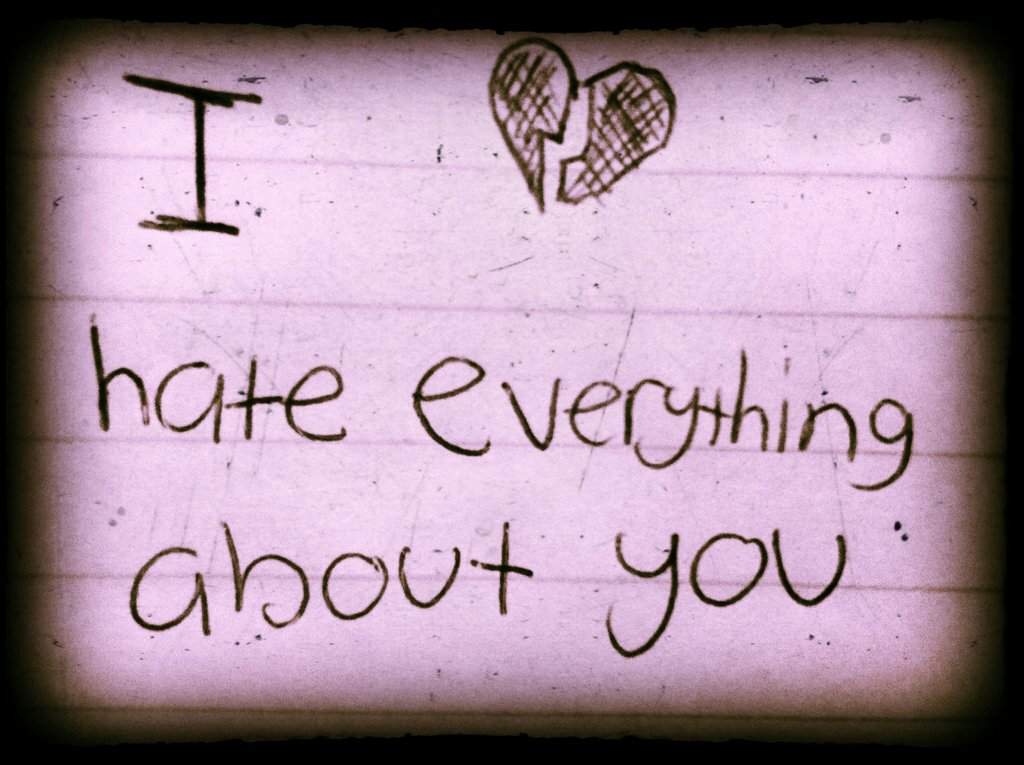 I
hate everything
about you